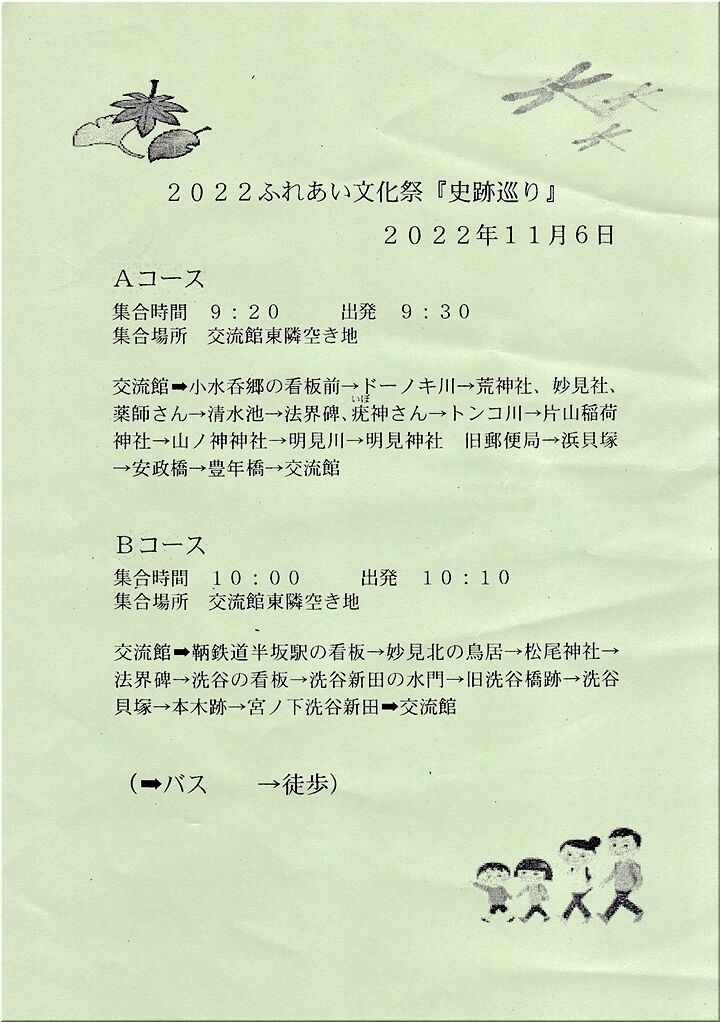 ２０２２ふれあい文化祭『史跡巡り』
２０２２年１１月６日
Ａコース
集合時間　９：２０　　　出発　９：３０
集合場所　交流館東隣空き地
交流館➡小水呑郷の看板前→ドーノキ川→荒神社、妙見社、
いぼ
薬師さん→清水池→法界碑、疣神さん→トンコ川→片山稲荷
神社→山ノ神神社→明見川→明見神社　旧郵便局→浜貝塚
→安政橋→豊年橋→交流館
Ｂコース
集合時間　１０：００　　　出発　１０：１０
集合場所　交流館東隣空き地
交流館➡鞆鉄道半坂駅の看板→妙見北の鳥居→松尾神社→
法界碑→洗谷の看板→洗谷新田の水門→旧洗谷橋跡→洗谷
貝塚→本木跡→宮ノ下洗谷新田➡交流館
（➡バス　　→徒歩）